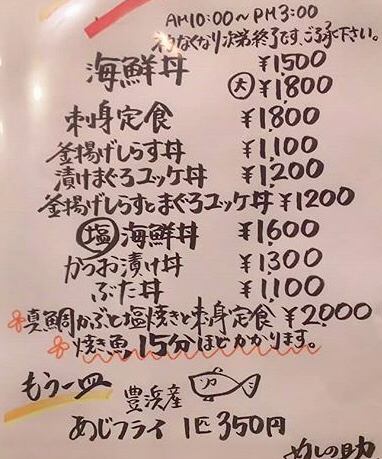 AM10:00～PM3:00
ネタなくなり次第終了です、ご了承下さい。
海鮮丼 ¥1500
大 ¥1800
刺身定食 ¥1800
釜揚げしらす丼 ¥1,100
漬けまぐろユッケ丼 ¥1,200
釜揚げしらすとまぐろユッケ丼 ¥1200
塩海鮮丼 ¥1,600
かつお漬け丼 ¥1,300
ぶた丼 ¥1,100
真鯛かぶと塩焼きと刺身定食 ¥2,000
焼き魚、15分ほどかかります。
もう一皿
豊浜産
あじフライ 1匹 350円
めしの助